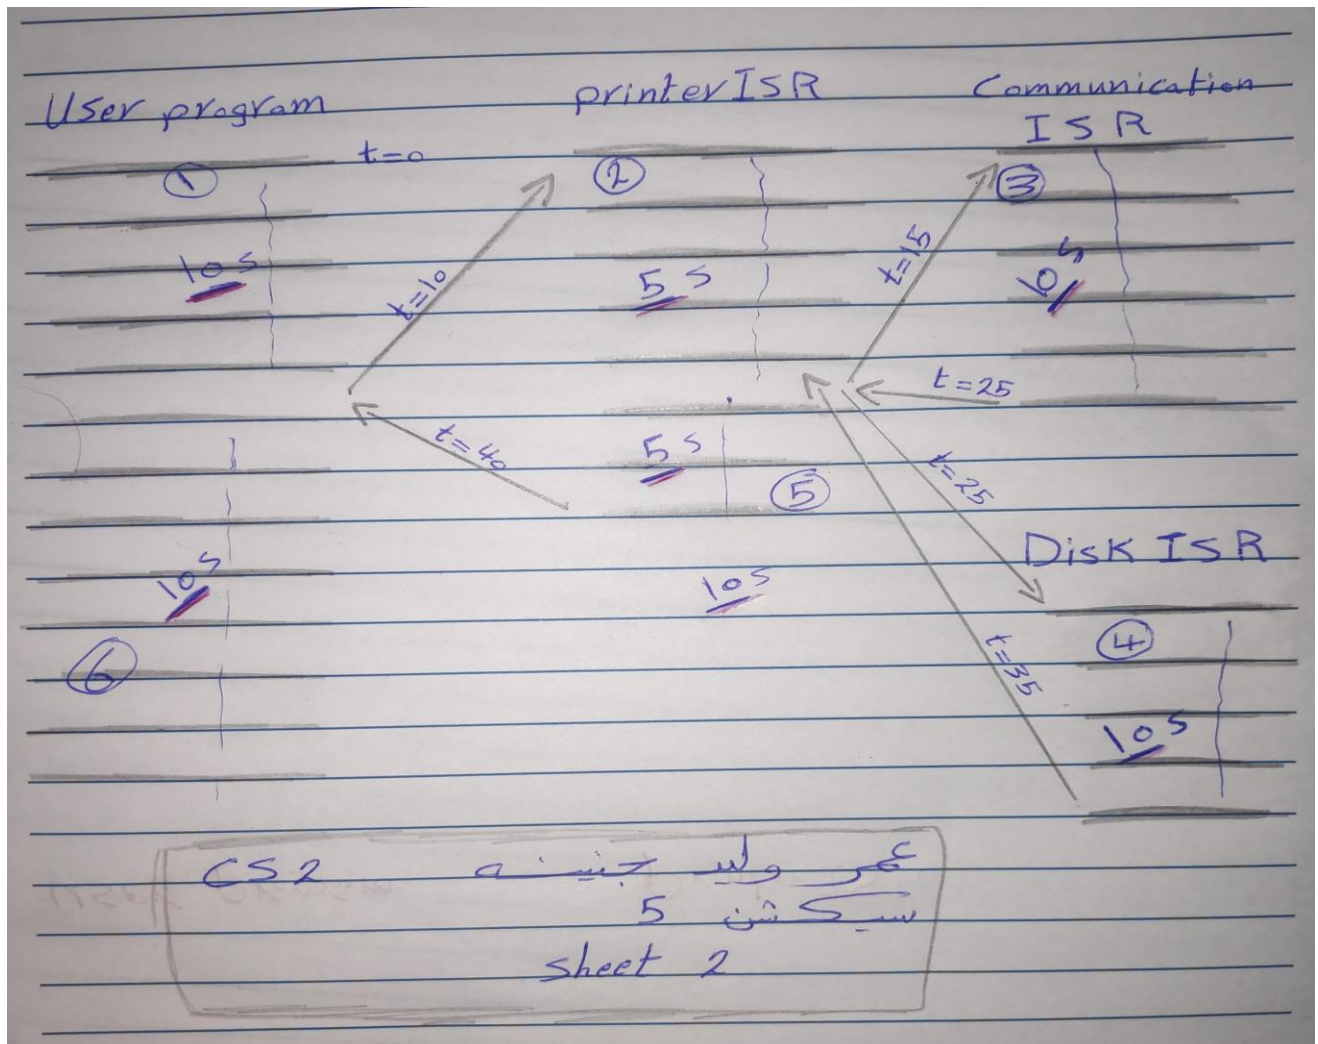 User program
printer ISR
Communication
ISR
t=0
1
2
3
10 s
t=10
5 s
t=15
10 s
t=25
t=40
5 s
5
t=25
Disk ISR
10 s
10 s
6
t=35
4
10 s
عمر وليد جنينه CS2
سيكشن 5
sheet 2